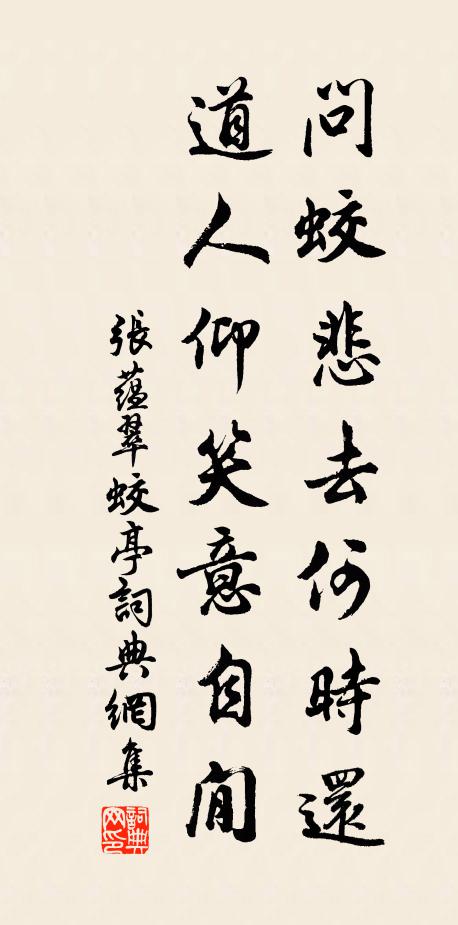 問蛟悲去何時還
道人仰笑意自閒
張蘊翠蛟亭詞典網集
詞典網印